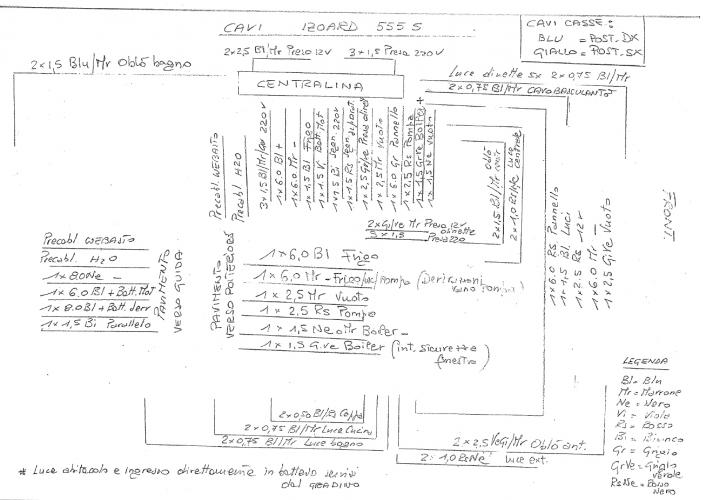 CAVI IZOARD 555 S
CAVI CASSE:
BLU = POST. DX
GIALLO = POST. SX
2x2,5 Bl/Mr Presa 12V
3x1,5 Presa 220V
2x1,5 Blu/Mr Oblò bagno
CENTRALINA
Luce dinette sx 2x0,75 Bl/Mr
2x0,75 Bl/Mr CAVO BASCULANTE
Precabl. WEBASTO
Precabl. H2O
3x1,5 Bl/Mr/Gv 220V
1x6.0 Bl +
1x6.0 Mr -
1x1.5 Vi Batt. Mot
1x1,5 Bi Segn. 220V
1x2,5 Mr Vuoto
1x6.0 Gr Pannello
1x2.5 Rs Pompa
1x1,5 GrVe Boiler +
1x1,5 Ne Vuoto
2x1,0 Bl/Ne Luce Centrale
2xGi/Ve Mr Presa 12V
3x1,5 dinette
Presa 220
FRONT.
1x6.0 Rs Pannello
1x1,5 Bl. Luci
1x2.5 Rs 12V
1x6.0 Mr -
1x2,5 GrVe Vuoto
Precabl WEBASTO
Precabl. H2O
1x8.0 Ne -
1x6.0 Bl + Batt. Mot
1x8.0 Bl + Batt. Serv
1x1,5 Bi Parallelo
PAVIMENTO
VERSO GUIDA
PAVIMENTO
VERSO POSTERIORE
1x6.0 Bl Frigo
1x6,0 Mr - Frigo/wc/Pompa (Derivazioni
vano pompa)
1x2,5 Mr Vuoto
1x2.5 Rs Pompa
1x1,5 Ne o Mr Boiler -
1x1,5 Gr.Ve Boiler (int. sicurezza
finestra)
2x0,50 Bl/Rs Cappa
2x0,75 Bl/Mr Luce Cucina
2x0.75 Bl/Mr Luce bagno
2x2,5 VeGi/Mr Oblò ant.
2x1,0 RsNe Luce ext.
LEGENDA
Bl = Blu
Mr = Marrone
Ne = Nero
Vi = Viola
Rs = Rosso
Bi = Bianco
Gr = Grigio
GrVe = Grigio
verde
RsNe = Rosso
Nero
* Luce abitacolo e ingresso direttamente in batteria servizi
dal GRADINO